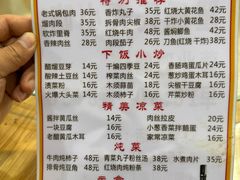 特別推荐
老式锅包肉 36元 香炸丸子 35元 红烧大黄花鱼 42元
熘肉段 35元 拆骨肉尖椒 35元 干炸小黄花鱼 35元
软炸里脊 35元 红烧牛肉 48元 酱焖鲫鱼 32元
香辣肉丝 28元 肉段茄子 26元 刀鱼(红烧 干炸) 38元
下饭小炒
醋熘豆芽 14元 干煸四季豆 24元 香肠炝蛋片 24元
酸辣土豆丝 14元 榨菜肉丝 24元 葱姜炒木耳 24元
渍菜粉 18元 木须蒜苔 24元 尖椒干豆腐 18元
火爆大头菜 14元 木须柿子 18元 芹菜炒粉 18元
精美凉菜
酱拌黄瓜丝 14元 肉丝拉皮 24元
一块豆腐 14元 小葱香菜拌豆腐 24元
家常凉菜 16元 大丰收 24元
炖菜
牛肉炖柿子 48元 青菜丸子粉丝汤 35元 水煮肉片 35元
排骨炖豆角 48元 红烧肉炖粉条 38元